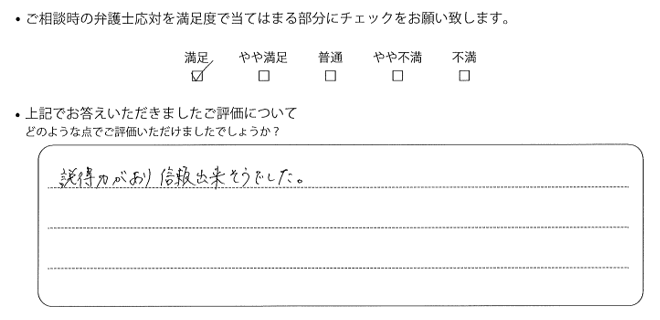 • ご相談時の弁護士応対を満足度で当てはまる部分にチェックをお願い致します。
満足 やや満足 普通 やや不満 不満
☑ □ □ □ □
• 上記でお答えいただきましたご評価について
どのような点でご評価いただけましたでしょうか？
説得力があり信頼出来そうでした。